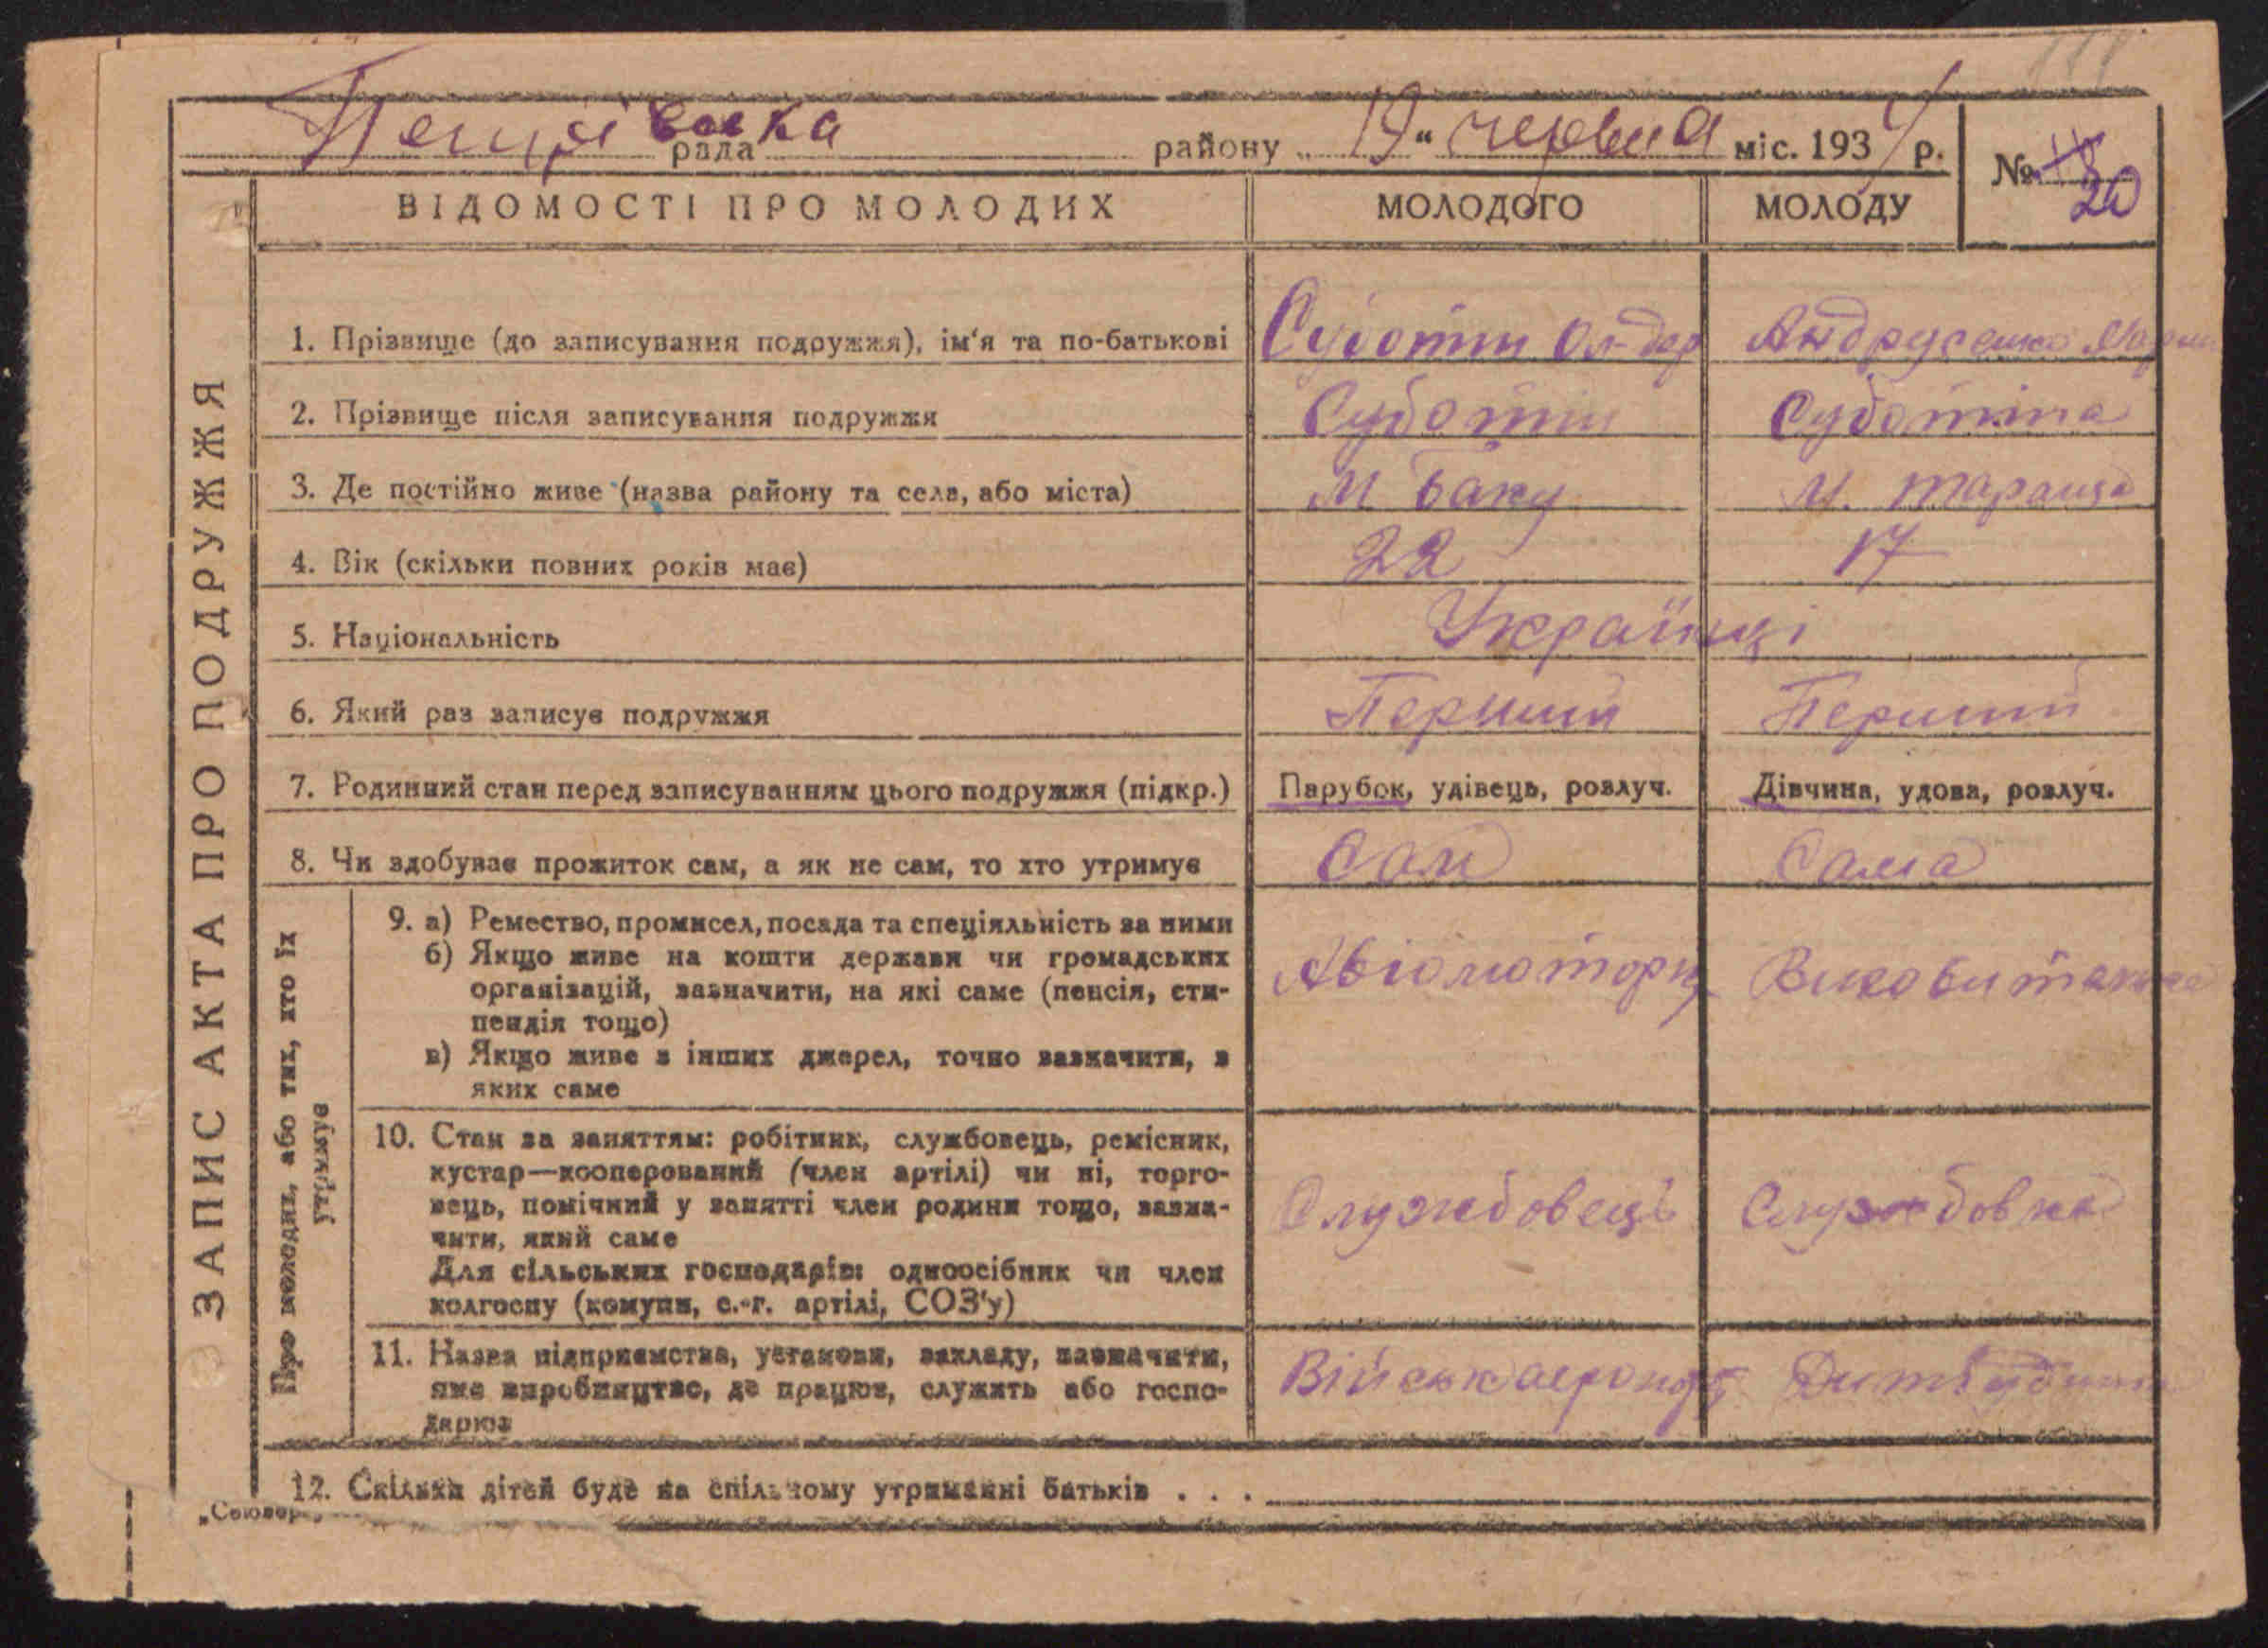 рада району „ 19 “ червня міс. 1934 р.
№ 20
ВІДОМОСТІ ПРО МОЛОДИХ МОЛОДОГО МОЛОДУ
ЗАПИС АКТА ПРО ПОДРУЖЖЯ
1. Прізвище (до записування подружжя), ім'я та по-батькові Суботин Ол-дер Андрусенко
2. Прізвище після записування подружжя Суботин Суботіна
3. Де постійно живе (назва району та села, або міста) М Баку М. Тараща
4. Вік (скільки повних років має) 22 17
5. Національність Українці
6. Який раз записує подружжя Перший Перший
7. Родинний стан перед записуванням цього подружжя (підкр.) Парубок, удівець, розлуч. Дівчина, удова, розлуч.
8. Чи здобуває прожиток сам, а як не сам, то хто утримує Сам Сама
Про молодих, або тих, хто їх
утримує
9. а) Ремество, промисел, посада та спеціяльність за ними
б) Якщо живе на кошти держави чи громадських
організацій, зазначити, на які саме (пенсія, сти-
пендія тощо)
в) Якщо живе з інших джерел, точно зазначити, з
яких саме
10. Стан за заняттям: робітник, службовець, ремісник,
кустар—кооперований (член артілі) чи ні, торго-
вець, помічний у занятті член родини тощо, зазна-
чити, який саме
Для сільських господарів: одноосібник чи член
колгоспу (комуни, с.-г. артілі, СОЗ'у)
Службовець Службовка
11. Назва підприємства, установи, закладу, зазначити,
яке виробництво, де працює, служить або госпо-
дарює
12. Скільки дітей буде на спільному утриманні батьків . . .